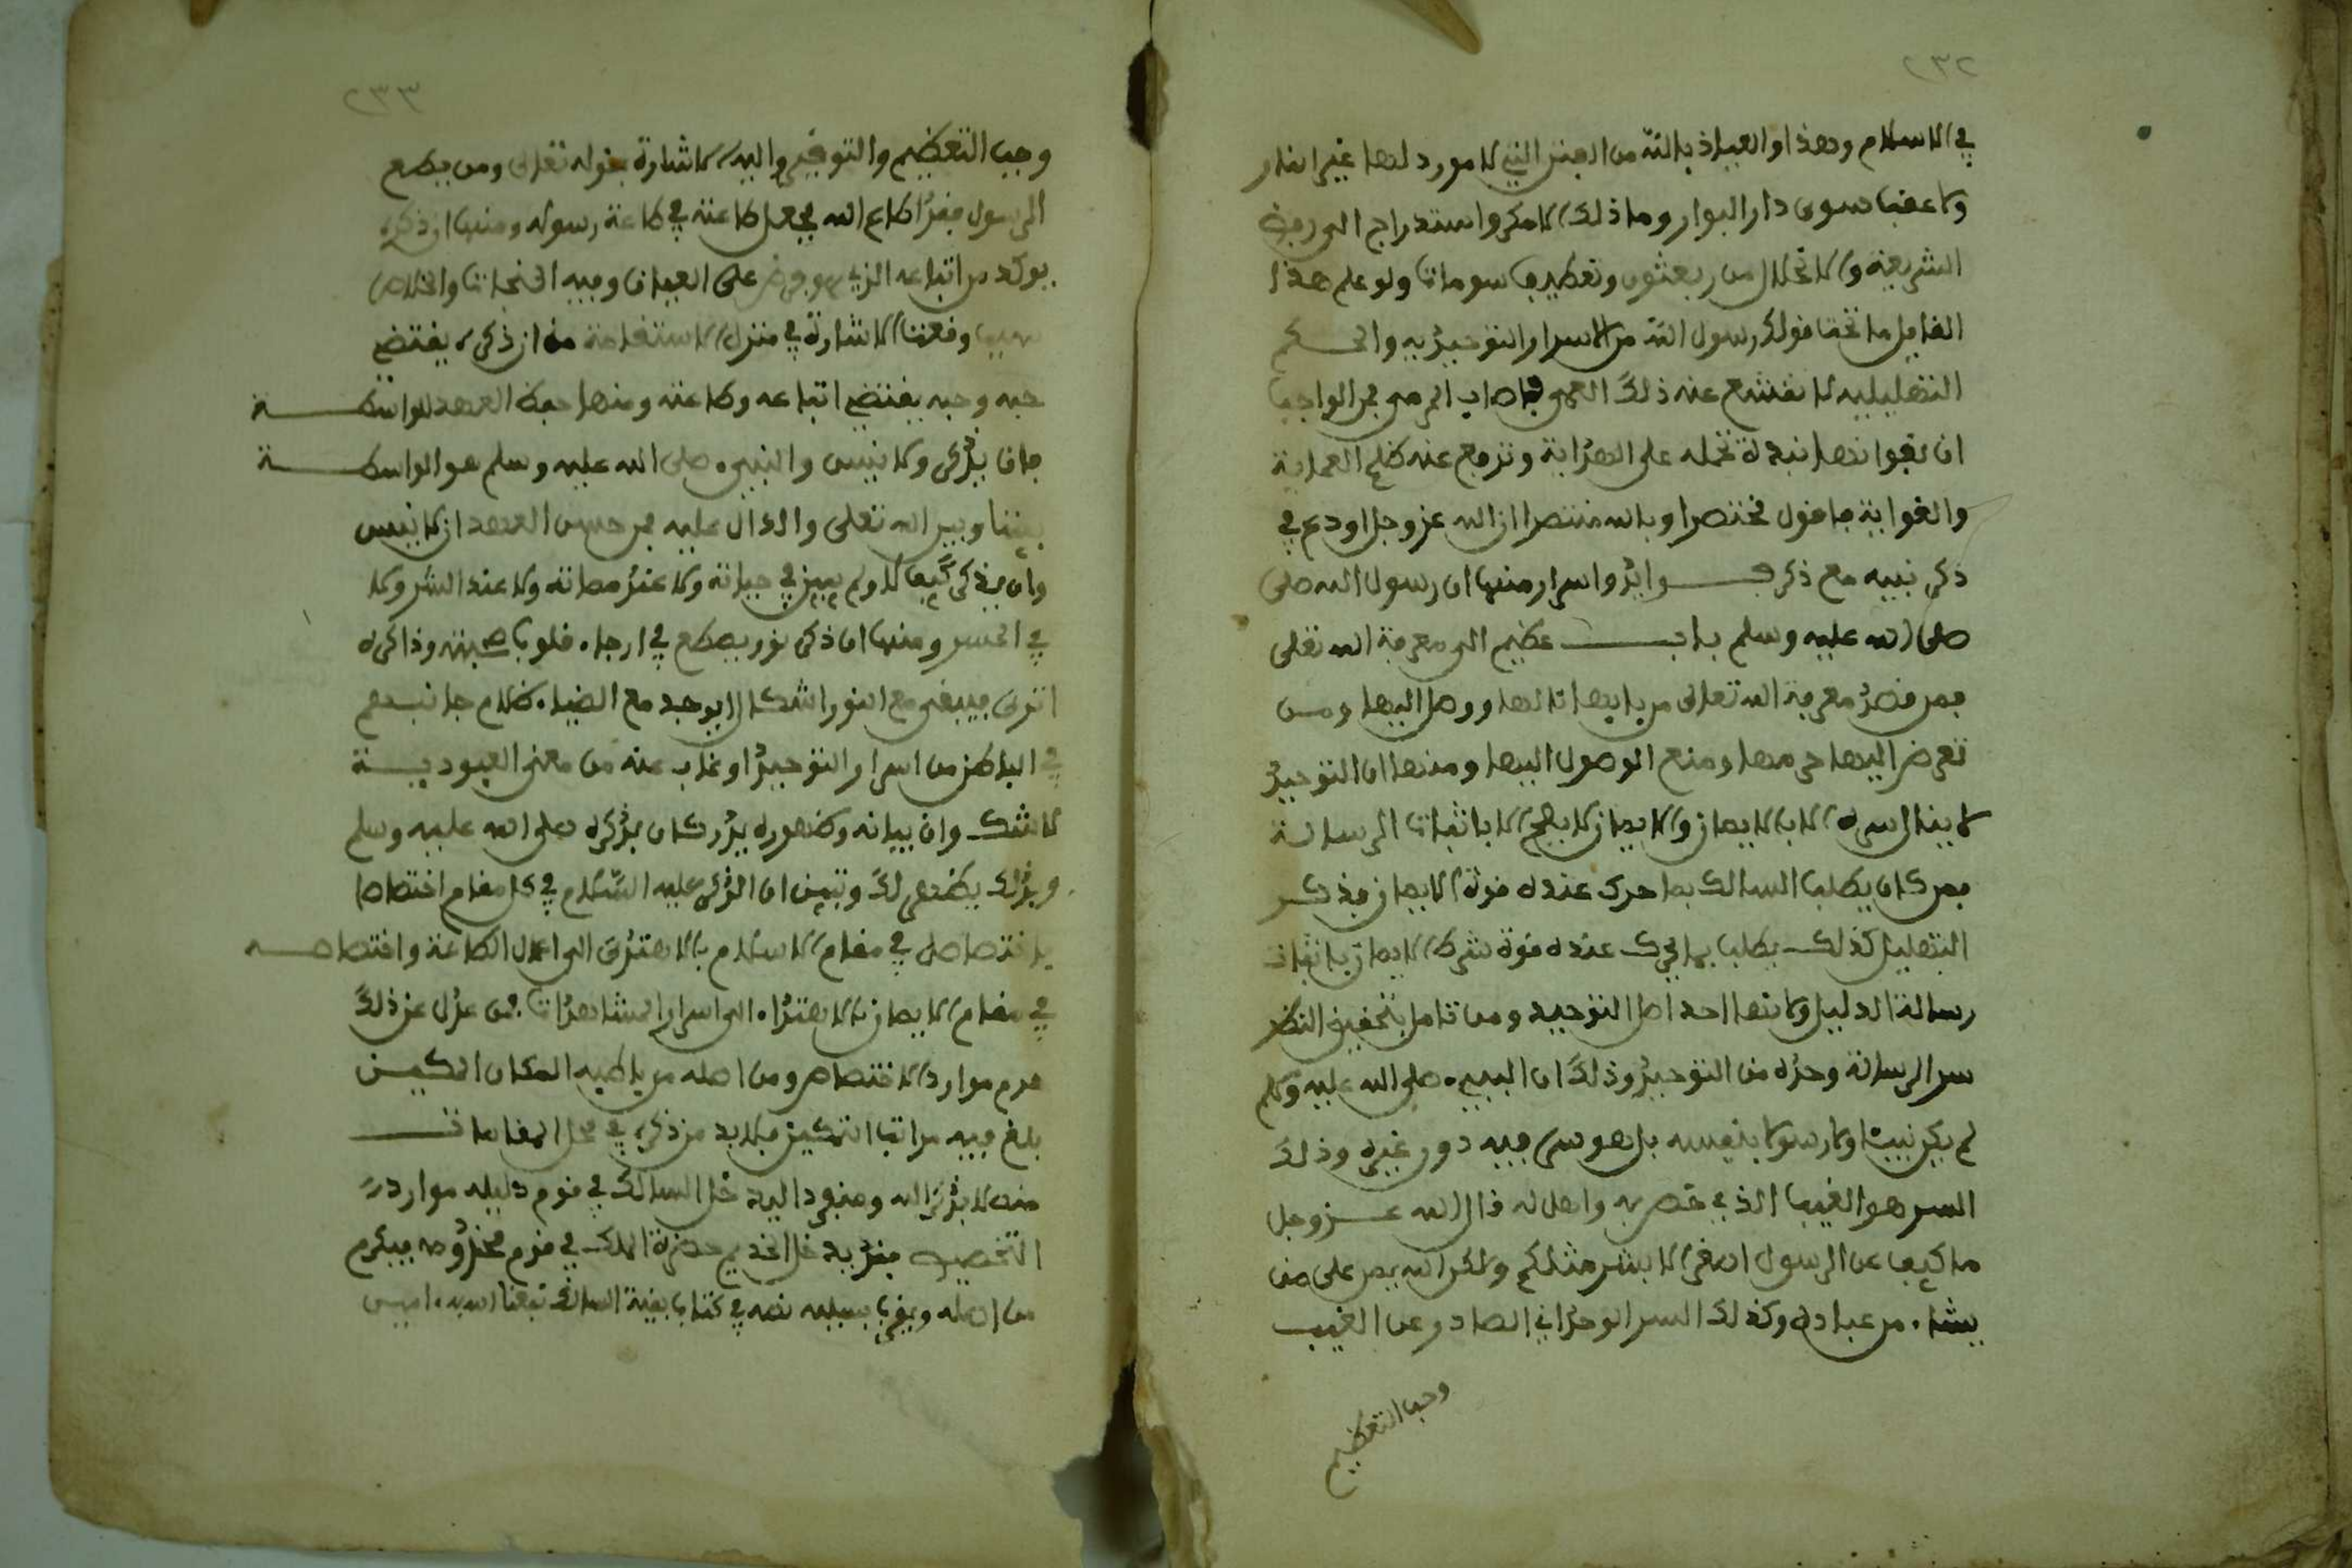 ٢٣٢
في الاسلام وهذا والعياذ بالله من الفتن التي لا مورد لها غير النار
ولا عقبا سوى دار البوار وما ذلك الا مكر واستدراج الى رفض
الشريعة والانحلال من ربقتها وتعطيل رسومها ولو علم هذا
القايل ما تحت قولك رسول الله من الاسرار التوحيدية والحكم
التهليلية لانقشع عنه ذلك العمى واصاب المرمى فمن الواجب
ان نفوا نبذة تحمله على الهداية وتزيح عنه ظلم العماية
والغواية فاقول مختصرا وبالله منتصرا ان الله عز وجل اودع في
ذكر نبيه مع ذكره فوائد واسرار منها ان رسول الله صلى
صلى الله عليه وسلم باب عظيم الى معرفة الله تعلى
فمن قصد معرفة الله تعالى من بابها نالها ووصل اليها ومن
تعرض اليها حرمها ومنع الوصول اليها ومنها ان التوحيد
لا ينال سره الا بالايمان والايمان لا يصح الا باثبات الرسالة
فمن كان يطلب السالك بما حرك عنده قوة الايمان بذكر
التهليل كذلك يطلب بما يحرك عنده قوة شرط الايمان باثبات
رسالة الدليل ولانها احد اصل التوحيد ومن تامل بتحقيق النظر
سر الرسالة وجده من التوحيد وذلك ان النبيء صلى الله عليه وسلم
لم يكن نبيا ولا رسولا بنفسه بل هو سر فيه دون غيره وذلك
السر هو الغيب الذي خص به واهل له قال الله عز وجل
حاكيا عن الرسول ان نحن الا بشر مثلكم ولكن الله يمن على من
يشاء من عباده وكذلك السر الوحداني الصادر عن الغيب
وجب التعظيم
٢٣٣
وجب التعظيم والتوقير واليه الاشارة بقوله تعالى ومن يطع
الرسول فقد اطاع الله فجعل طاعته في طاعة رسوله ومنها ان ذكره
يوكد من اتباعه الذي هو فرض على العباد وفيه النجاة والخلاص
وقعت الاشارة في منزل الاستقامة من ان ذكره يقتضي
حبه وحبه يقتضي اتباعه وطاعته ومنها حفظ العهد للواسطة
بان يذكر ولا ينسى والنبيء صلى الله عليه وسلم هو الواسطة
بيننا وبين الله تعلى والدال عليه فمن حسن العهد ان لا ينسى
وان يذكر كيف لا ولم ينس في حياته ولا عند مماته ولا عند النشر ولا
في الحشر ومنها ان ذكره نور يسطع في ارجاء قلوب محبيه وذاكره
اترى يبقى مع النور اشكال او يوجد مع الضياء ظلام فما نبهم
في الباطن من اسرار التوحيد او غاب عنه من معنى العبودية
لا شك وان بيانه وظهوره يدركان بذكره صلى الله عليه وسلم
وبذلك يظهر لك وتبين ان الذكر عليه السلام في كل مقام اختصاصا
باختصاصه في مقام الاسلام بالاهتداء الى اعمال الطاعة واختصاصه
في مقام الايمان بالاهتداء الى اسرار المشاهدات فمن عدل عن ذلك
حرم موارد الاختصاص ومن اصله من باطنه المكان المكين
بلغ فيه مراتب التمكين فلابد من ذكره في كل المقامات
منه لا بذكر الله ومنقود اليه خل السالك في قوم دليله موارد
التخصيص بقربه خل الخديم حضرة الملك في قوم مخدومه فيكرم
من اجله ويقرب بسببه نصه في كتاب بغية السالك نفعنا الله به امين